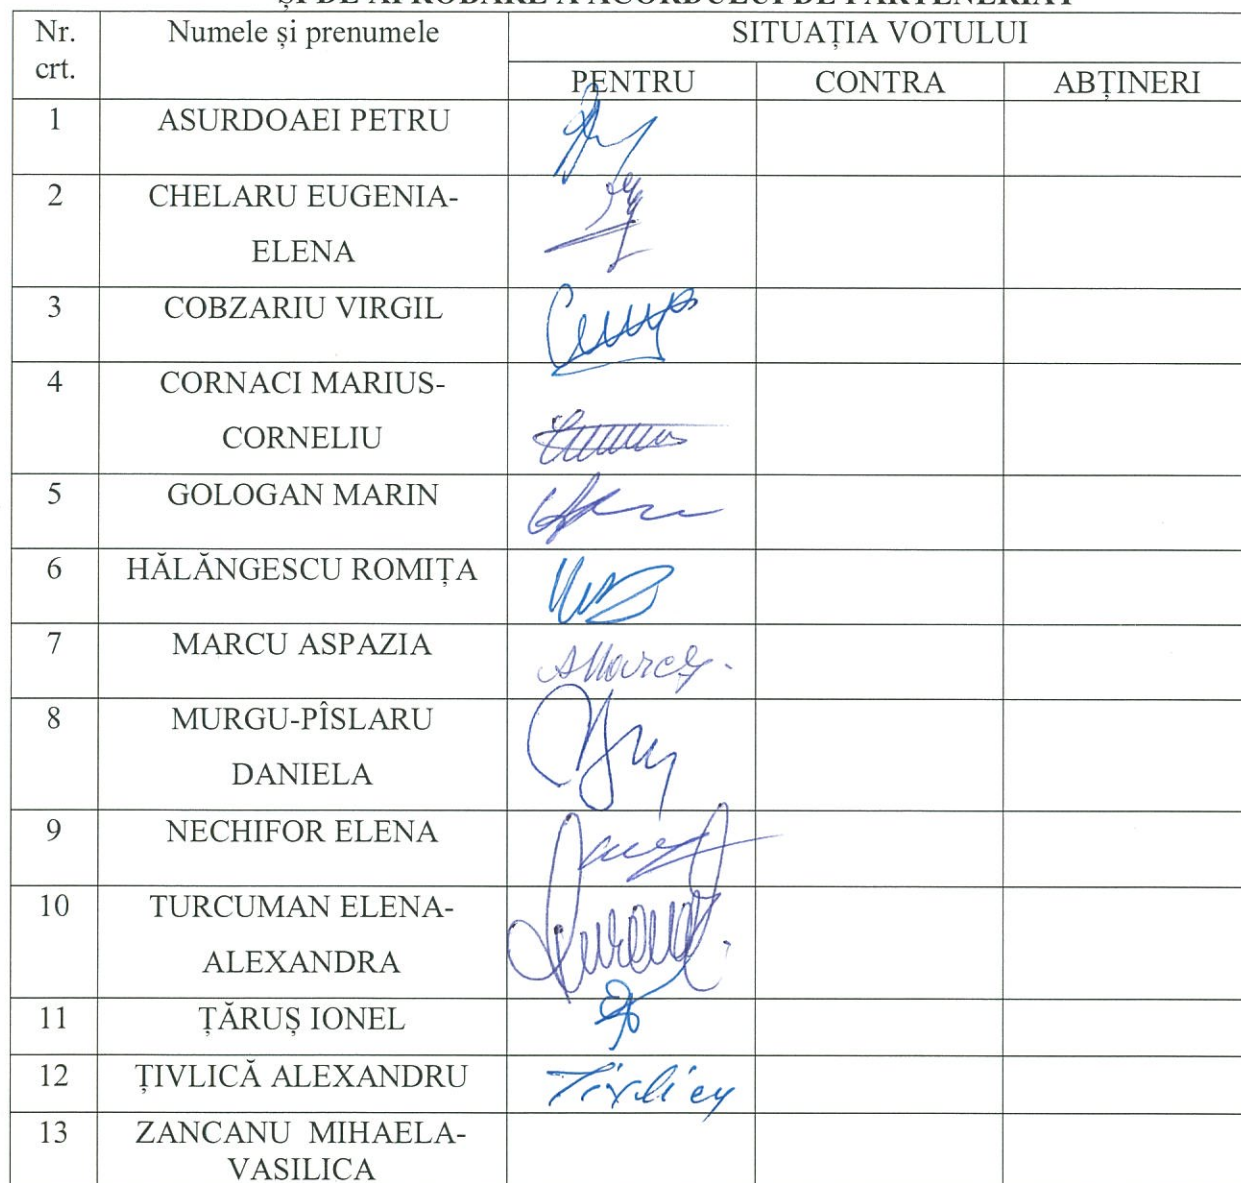 ȘI DE APROBARE A ACORDULUI DE PARTENERIAT
Nr. crt. Numele și prenumele SITUAȚIA VOTULUI
PENTRU CONTRA ABȚINERI
1 ASURDOAEI PETRU
2 CHELARU EUGENIA-
ELENA
3 COBZARIU VIRGIL
4 CORNACI MARIUS-
CORNELIU
5 GOLOGAN MARIN
6 HĂLĂNGESCU ROMIȚA
7 MARCU ASPAZIA
8 MURGU-PÎSLARU
DANIELA
9 NECHIFOR ELENA
10 TURCUMAN ELENA-
ALEXANDRA
11 ȚĂRUȘ IONEL
12 ȚIVLICĂ ALEXANDRU
13 ZANCANU MIHAELA-
VASILICA